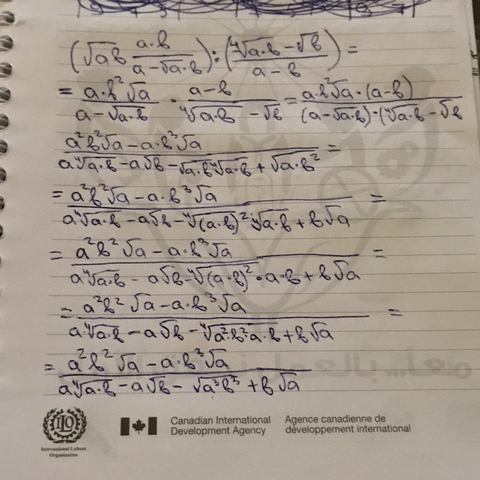 (√a b (a·b)/(a-√a·b)) : ((⁴√a·b - √b)/(a-b)) =
= (a·b²√a)/(a-√a·b) · (a-b)/(⁴√a·b - √b) = (a·b²√a·(a-b))/((a-√a·b)·(⁴√a·b - √b)
(a²b²√a - a·b³√a)/(a⁴√a·b - a√b - √a·b ⁴√a·b + √a·b²) =
= (a²b²√a - a·b³√a)/(a⁴√a·b - a√b - ⁴√(a·b)² · ⁴√a·b + b√a) =
= (a²b²√a - a·b³√a)/(a⁴√a·b - a√b - ⁴√(a·b)²·a·b + b√a) =
= (a²b²√a - a·b³√a)/(a⁴√a·b - a√b - ⁴√a²b²a·b + b√a) =
= (a²b²√a - a·b³√a)/(a⁴√a·b - a√b - √a³b³ + b√a)
ILO
International Labour
Organization
Canadian International
Development Agency
Agence canadienne de
développement international